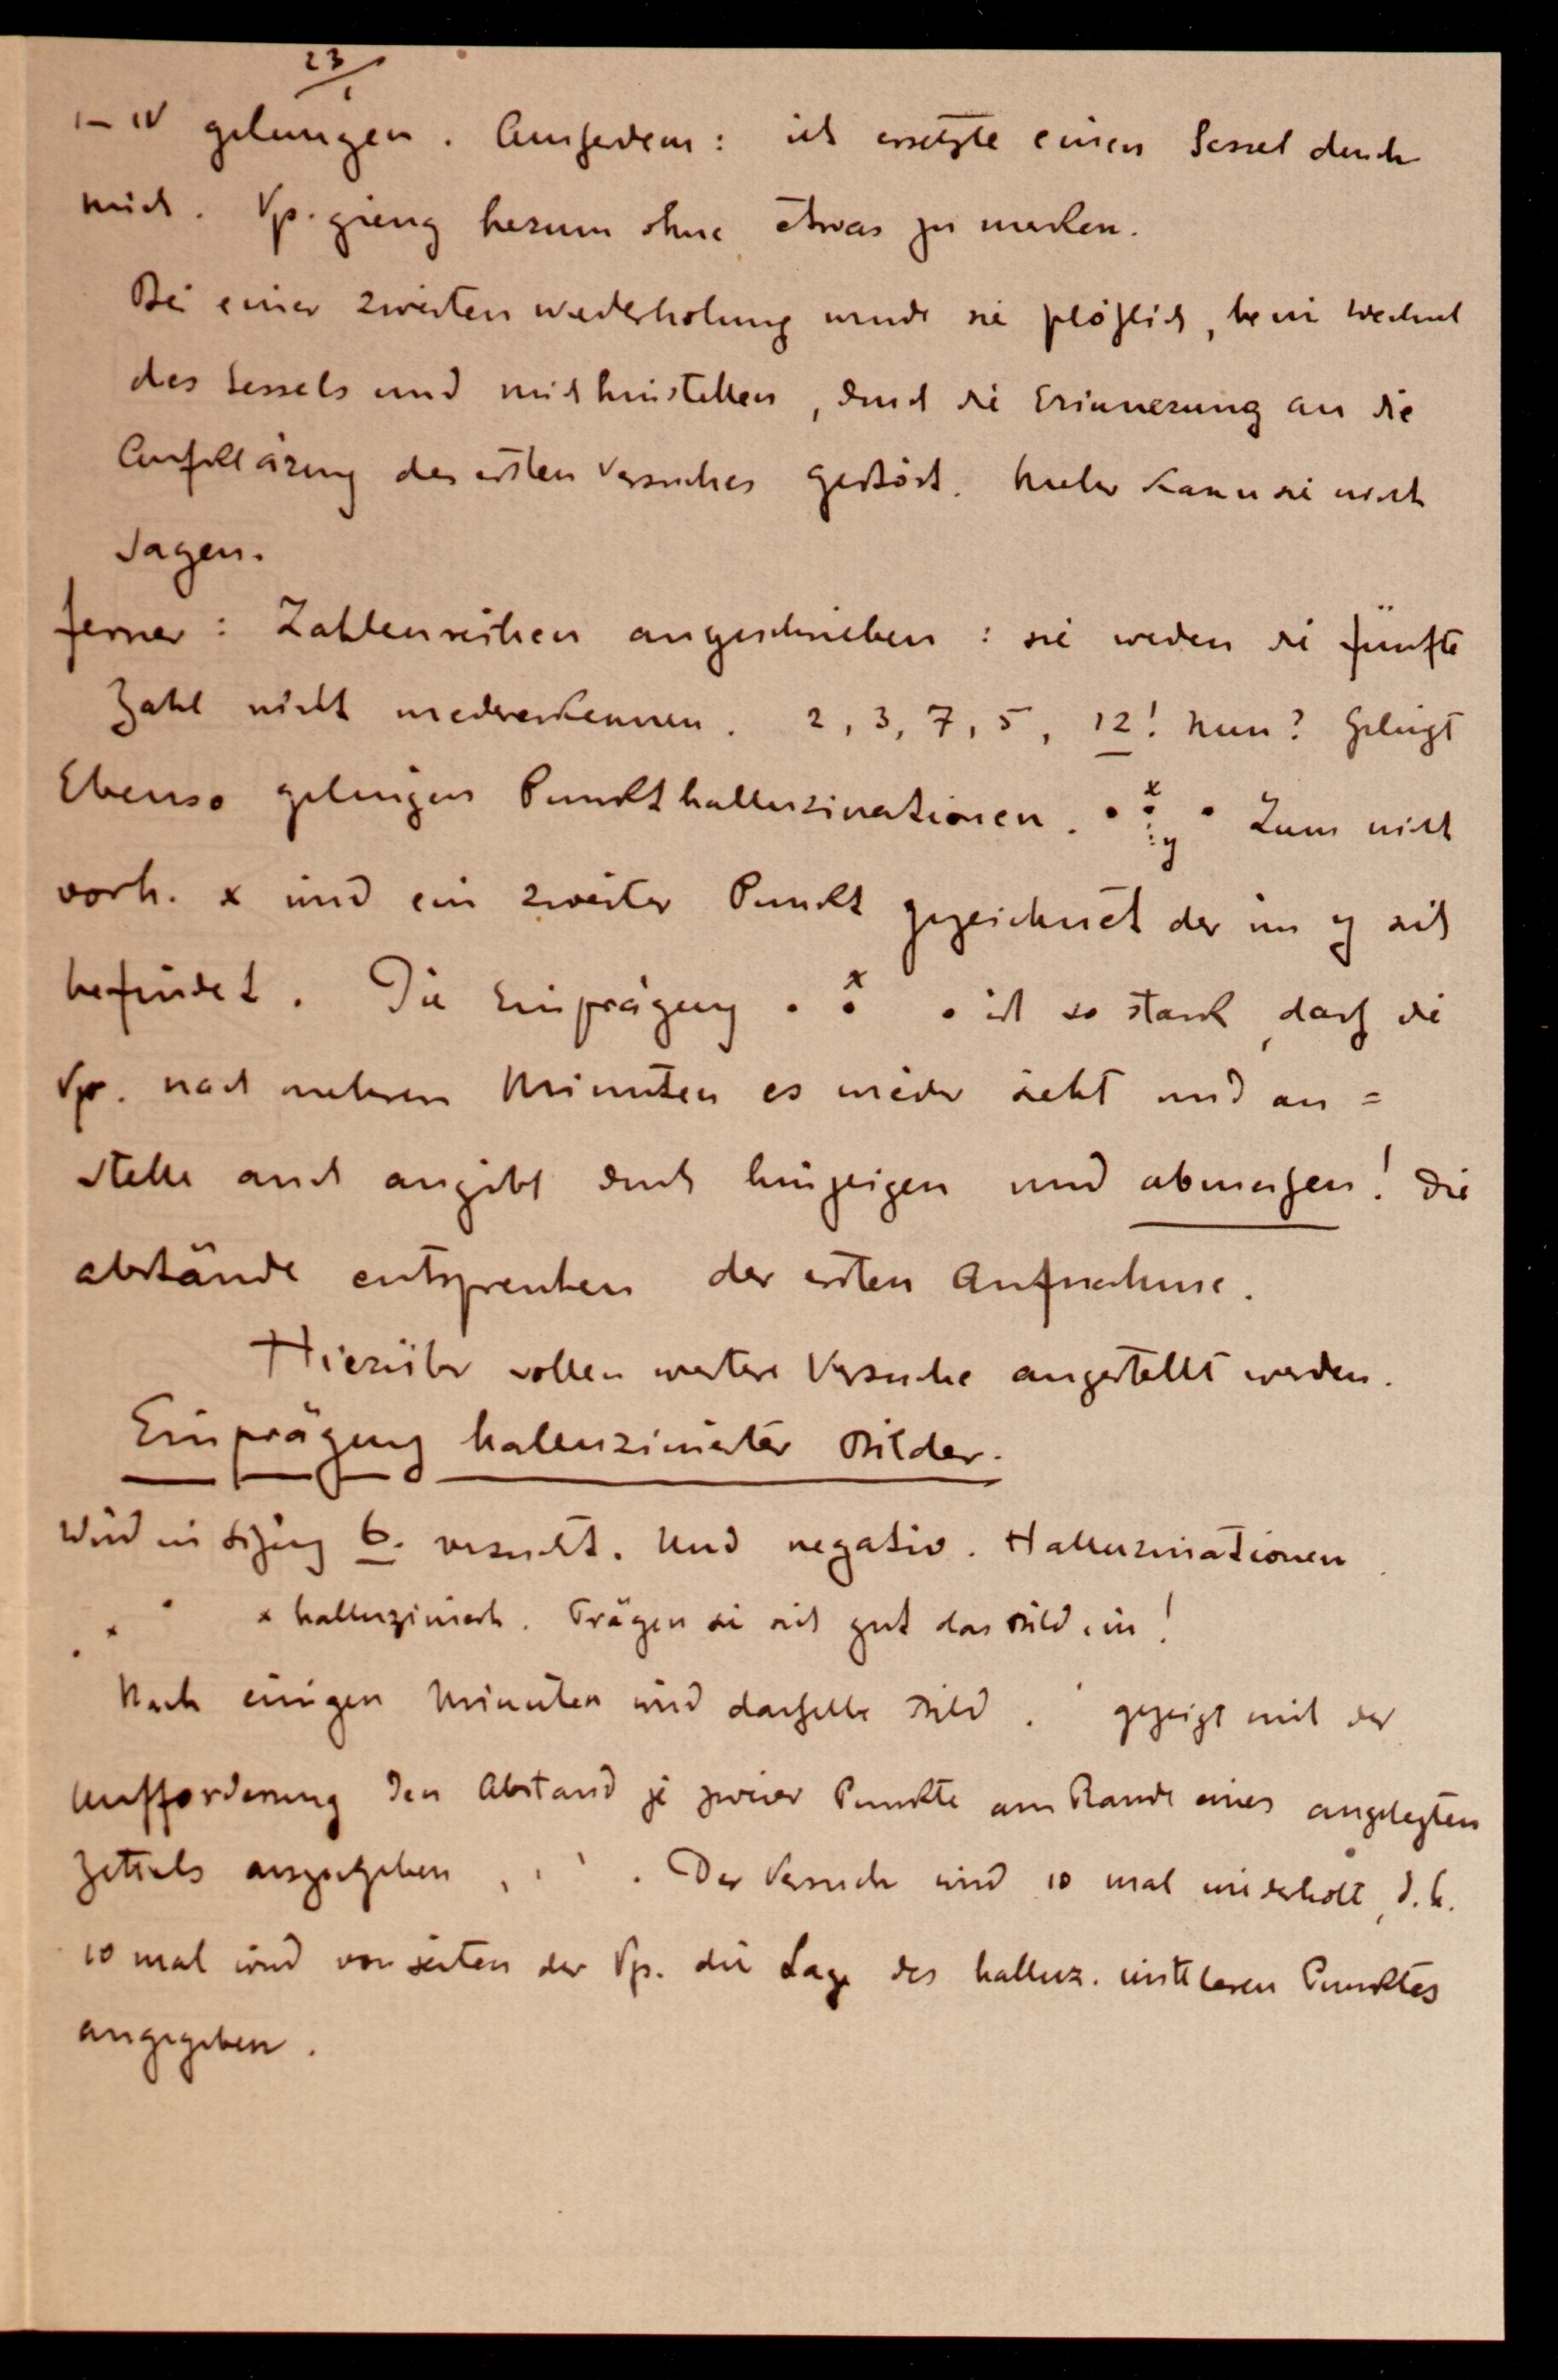 23/1
I–IV gelungen. Außerdem: ich ersetzte einen Sessel durch
mich. Vp. gieng herum ohne etwas zu merken.
Bei einer zweiten Wiederholung wurde sie plötzlich, beim Wechsel
des Sessels und mich hinstellen, durch die Erinnerung an die
Aufklärung des ersten Versuches gestört. Mehr kann sie nicht
sagen.
Ferner: Zahlenreihen angeschrieben: sie werden die fünfte
Zahl nicht wiedererkennen. 2, 3, 7, 5, 12! Nun? Gelingt
Ebenso gelingen Punkthalluzinationen. • x • y • Zum nicht
vorh. x wird ein zweiter Punkt gezeichnet der in y sich
befindet. Die Einprägung • x • • ist so stark, daß die
Vp. nach mehreren Minuten es wieder sieht und an =
stelle auch angibt durch hinzeigen und abmeßen! Die
Abstände entsprechen der ersten Aufnahme.
Hierüber sollen weitere Versuche angestellt werden.
Einprägung halluzinierter Bilder.
Wird in Sitzung 6. versucht. Und negativ. Halluzinationen
. x • x halluziniert. Prägen sie sich gut das Bild ein!
Nach einigen Minuten wird dasselbe Bild . • gezeigt mit der
Aufforderung den Abstand je zweier Punkte am Rande eines angelegten
Zettels anzugeben , ' ' . Der Versuch wird 10 mal wiederholt, d.h.
10 mal wird von seiten der Vp. die Lage des halluz. mittleren Punktes
angegeben.